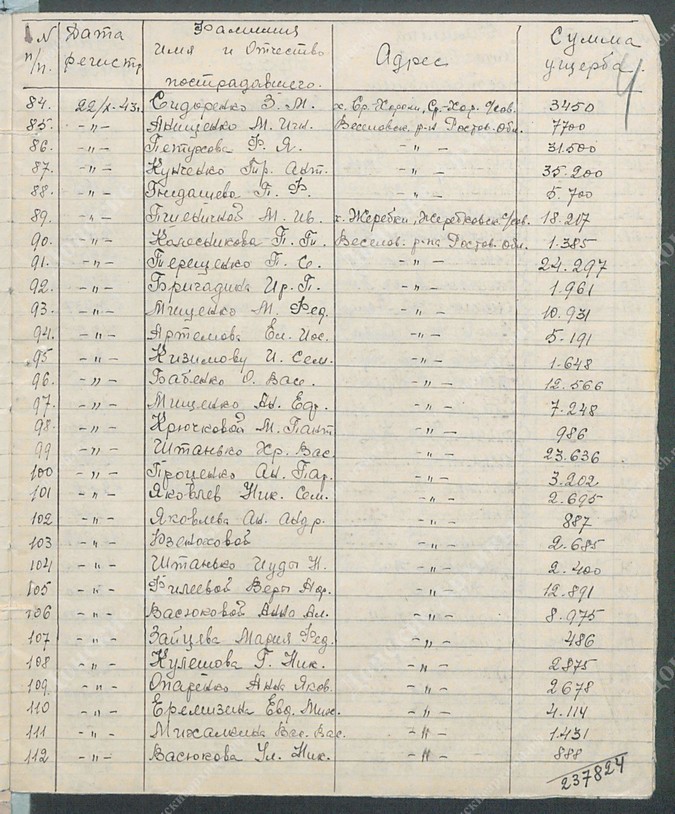 N п/п. Дата регистр. Фамилия имя и Отчество пострадавшего. Адрес Сумма ущерба.
4
84. 22/X-43г. Сидоренко З. М. х. Ср.-Хороли, Ср.-Хор. с/сов. 3450
85. -"- Анищенко М. Игн. Веселовск. р-н Ростов. Обл. 7700
86. -"- Петухова Ф. Я. -"- 31.500
87. -"- Кунченко Гр. Ант. -"- 35.200
88. -"- Гнидашева П. Ф. -"- 5.700
89. -"- Пшеничной М. Ив. х. Жеребки, Жеребковск. с/сов. 18.217
90. -"- Колесникова П. Гр. Веселов. р-на Ростов. Обл. 1.385
91. -"- Терещенко П. С. -"- 24.297
92. -"- Бригадина Ир. Г. -"- 1.961
93. -"- Мищенко М. Фед. -"- 10.931
94. -"- Артемова Ел. Иос. -"- 5.191
95 -"- Кизимову И. Сем. -"- 1.648
96. -"- Бабенко О. Вас. -"- 12.566
97. -"- Мищенко Ан. Ефр. -"- 7.248
98. -"- Крючковой М. Пант -"- 986
99 -"- Штанько Хр. Вас. -"- 23.636
100 -"- Проценко Ан. Пар. -"- 3.202
101 -"- Яковлев Ник. Сем. -"- 2.695
102 -"- Яковлева Ан. Андр. -"- 887
103 -"- -"- 2.685
104 -"- Штанько Иуды Н. -"- 2.400
105 -"- Филеевой Веры -"- 12.891
106 -"- Васюковой Анна Ал. -"- 8.975
107 -"- Зайцева Мария Фед. -"- 486
108 -"- Кулешова Г. Ник. -"- 2875
109. -"- Опаренко Анна Яков. -"- 2678
110 -"- Еремизина Евд. Мих. -"- 4.114
111 -"- Михалкина Вас. Вас. -"- 1.431
112 -"- Васюкова Ул. Ник. -"- 888
237824